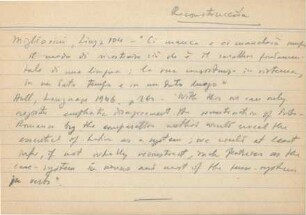 Reconstrucción
Migliorini, Lingua 104 - "Ci manca e ci mancherà sempre
il modo di ricostruire ciò che è il carattere fondamen-
tale di una lingua: la sua in sistema,
in un dato tempo e in un dato luogo"
Hall, Language 1946, - "With this we can only
register emphatic disagreement the reconstruction of Proto-
Romance by the comparative method would reveal the
of Latin as a system; we could at least
infer, if not wholly reconstruct, such features as the
case-system in nouns and most of the tense-system
in verbs"